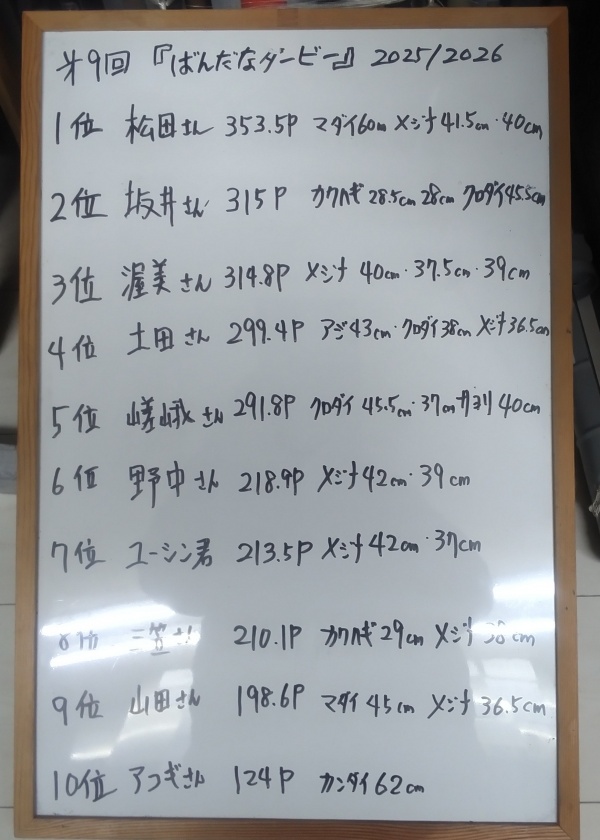 第9回『ばんだなダービー』2025/2026
1位 松田さん 353.5P マダイ60cm メジナ41.5cm・40cm
2位 坂井さん 315P カワハギ28.5cm 28cm クロダイ45.5cm
3位 渥美さん 314.8P メジナ 40cm・37.5cm・39cm
4位 土田さん 299.4P アジ43cm・クロダイ38cm メジナ36.5cm
5位 嵯峨さん 291.8P クロダイ 45.5cm・37cm サヨリ40cm
6位 野中さん 218.9P メジナ42cm・39cm
7位 ユーシン君 213.5P メジナ42cm・37cm
8位 三笠さん 210.1P カワハギ29cm メジナ cm
9位 山田さん 198.6P マダイ45cm メジナ36.5cm
10位 アツギさん 124P カンダイ62cm